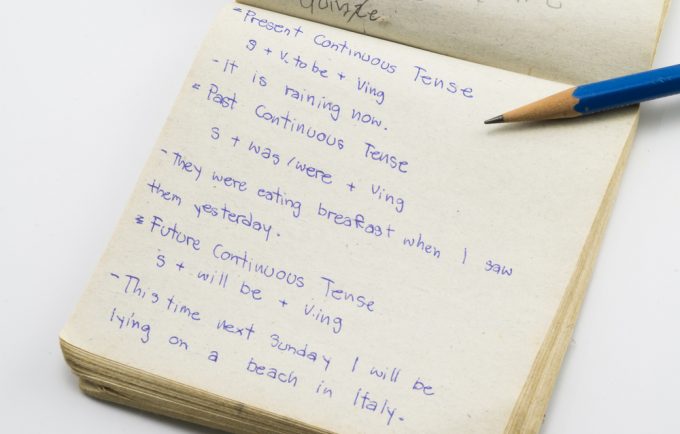 Quinze
= Present Continuous Tense
S + V. to be + Ving
- It is raining now.
= Past Continuous Tense
S + was/were + Ving
- They were eating breafast when I saw
them yesterday.
= Future Continuous Tense
S + will be + V.ing
- This time next Sunday I will be
lying on a beach in Italy.